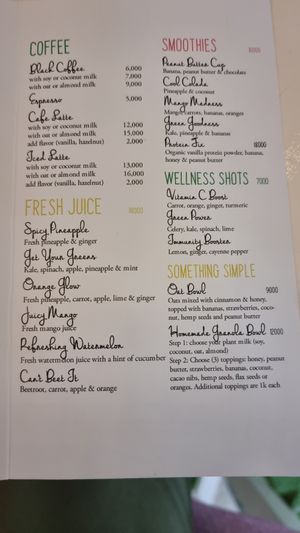 COFFEE
Black Coffee 6,000
with soy or coconut milk 7,000
with oat or almond milk 9,000
Espresso 5,000
Cafe Latte
with soy or coconut milk 12,000
with oat or almond milk 15,000
add flavor (vanilla, hazelnut) 2,000
Iced Latte
with soy or coconut milk 13,000
with oat or almond milk 16,000
add flavor (vanilla, hazelnut) 2,000
FRESH JUICE
Spicy Pineapple
Fresh pineapple & ginger
Get Your Greens
Kale, spinach, apple, pineapple & mint
Orange Glow
Fresh pineapple, carrot, apple, lime & ginger
Juicy Mango
Fresh mango juice
Refreshing Watermelon
Fresh watermelon juice with a hint of cucumber
Can't Beet It
Beetroot, carrot, apple & orange
SMOOTHIES
Peanut Butter Cup
Banana, peanut butter & chocolate
Cool Colada
Pineapple & coconut
Mango Madness
Mango, carrots, bananas, oranges
Green Goodness
Kale, pineapple & bananas
Protein Fix 18000
Organic vanilla protein powder, banana,
honey & peanut butter
WELLNESS SHOTS 7000
Vitamin C Boost
Carrot, orange, ginger, turmeric
Green Power
Celery, kale, spinach, lime
Immunity Booster
Lemon, ginger, cayenne pepper
SOMETHING SIMPLE
Oat Bowl 9000
Oats mixed with cinnamon & honey,
topped with bananas, strawberries, coco-
nut, hemp seeds and peanut butter
Homemade Granola Bowl 12000
Step 1: choose your plant milk (soy,
coconut, oat, almond)
Step 2: Choose (3) toppings: honey, peanut
butter, strawberries, bananas, coconut,
cacao nibs, hemp seeds, flax seeds or
oranges. Additional toppings are 1k each.